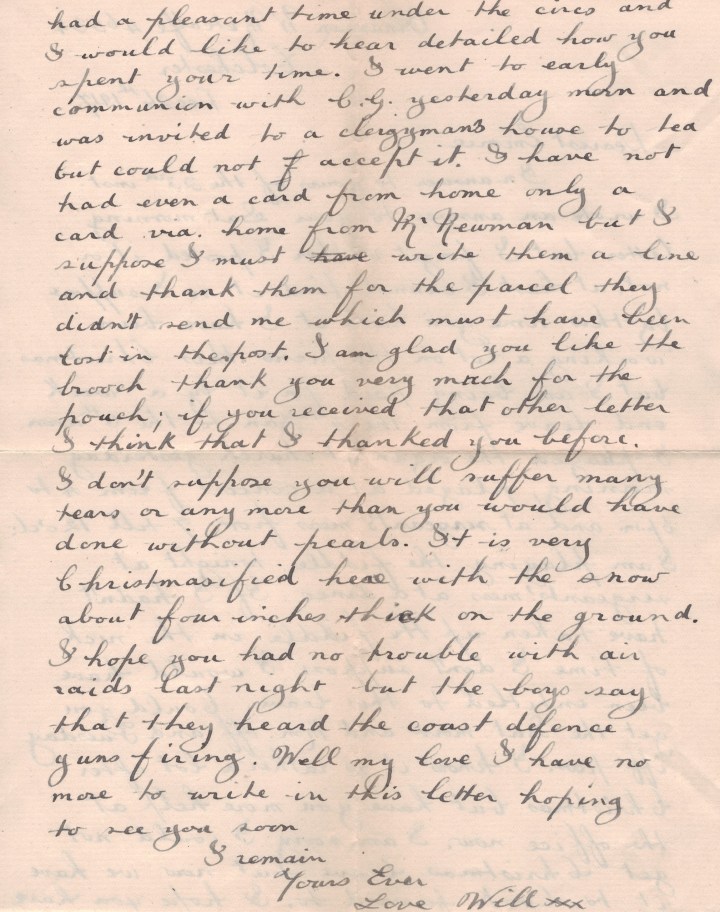 had a pleasant time under the circs and
I would like to hear detailed how you
spent your time. I went to early
communion with C.G. yesterday morn and
was invited to a clergyman's house to tea
but could not I accept it. I have not
had even a card from home only a
card via. home from Mr Newman but I
suppose I must have write them a line
and thank them for the parcel they
didn't send me which must have been
lost in the post. I am glad you like the
brooch thank you very much for the
pouch; if you received that other letter
I think that I thanked you before.
I don't suppose you will suffer many
tears or any more than you would have
done without pearls. It is very
Christmasified here with the snow
about four inches thick on the ground.
I hope you had no trouble with air
raids last night but the boys say
that they heard the coast defence
guns firing. Well my love I have no
more to write in this letter hoping
to see you soon
I remain
Yours Ever
Love Will xxx